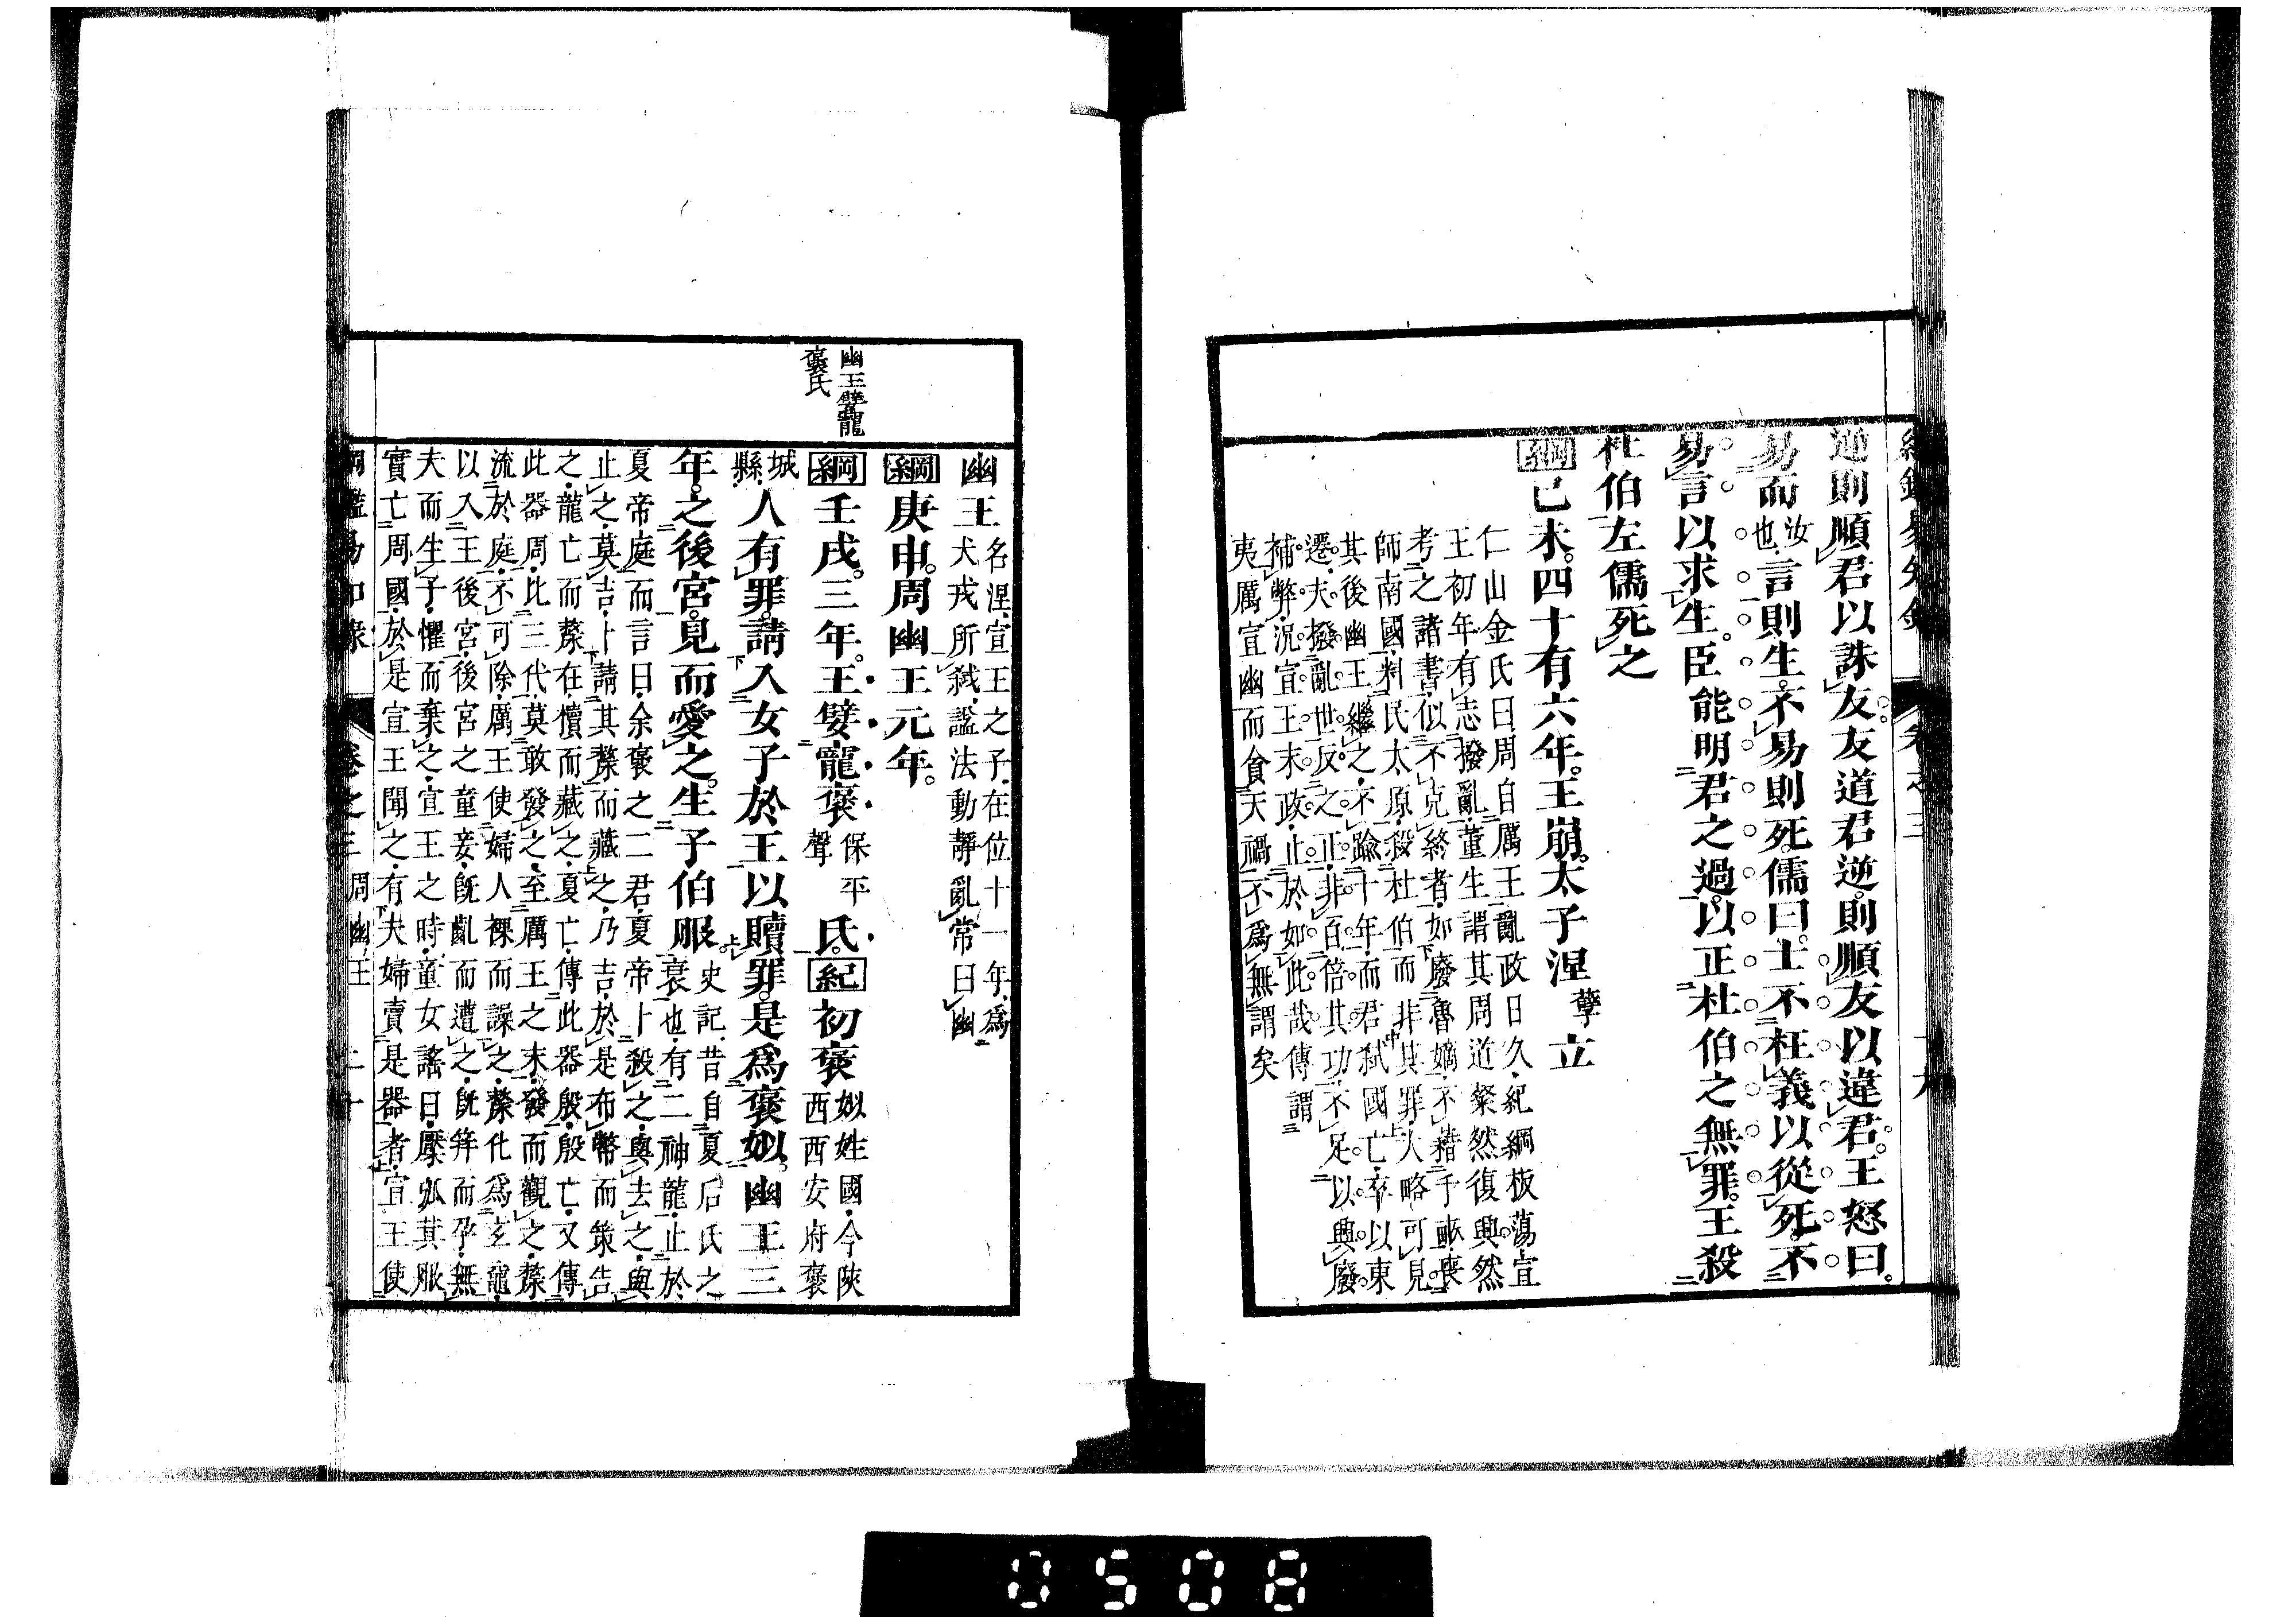 逆則順君以誅友友道君逆則順友以違君王怒曰
易而汝也言則生不易則死儒曰士不枉義以從死不
易言以求生臣能明君之過以正杜伯之無罪王殺
杜伯左儒死之
綱己未四十有六年王崩太子涅孽立
仁山金氏曰周自厲王亂政日久紀綱板蕩宣
王初年有志撥亂董生謂其周道粲然復興然
考之諸書似不克終者如廢魯嫡不藉千畝喪
師南國料民太原殺杜伯而非其罪大略可見
其後幽王繼之不踰十年而君弑國亡卒以東
遷夫撥亂世反之正非百倍其功不足以興廢
補弊況宣王末政止於如此哉傳謂
夷厲宣幽而貪天禍不為無謂矣
幽王名涅宣王之子在位十一年為
犬戎所弑諡法動靜亂常曰幽
綱庚申周幽王元年
幽王嬖寵
褒氏
綱壬戌三年王嬖寵褒保平聲氏紀初褒姒姓國今陝
西西安府褒
城縣人有罪請入女子於王以贖罪是為褒姒幽王三
年之後宮見而愛之生子伯服史記昔自夏后氏之
衰也有二神龍止於
夏帝庭而言曰余褒之二君夏帝卜殺之與去之與
止之莫吉卜請其漦而藏之乃吉於是布幣而策告
之龍亡而漦在櫝而藏之夏亡傳此器殷殷亡又傳
此器周比三代莫敢發之至厲王之末發而觀之漦
流於庭不可除厲王使婦人裸而譟之漦化為玄黿
以入王後宮後宮之童妾旣齓而遭之旣筓而孕無
夫而生子懼而棄之宣王之時童女謠曰檿弧其服
實亡周國於是宣王聞之有夫婦賣是器者宣王使
綱鑑易知錄 卷之三 周幽王 二十